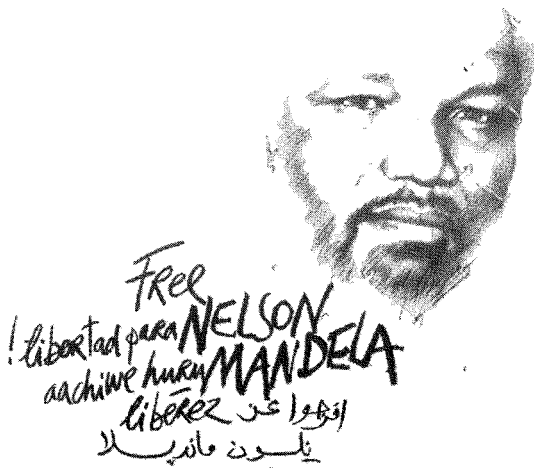 Free
¡libertad para NELSON
aachiwe huru MANDELA
libérez افرجوا عن
نلسون مانديلا